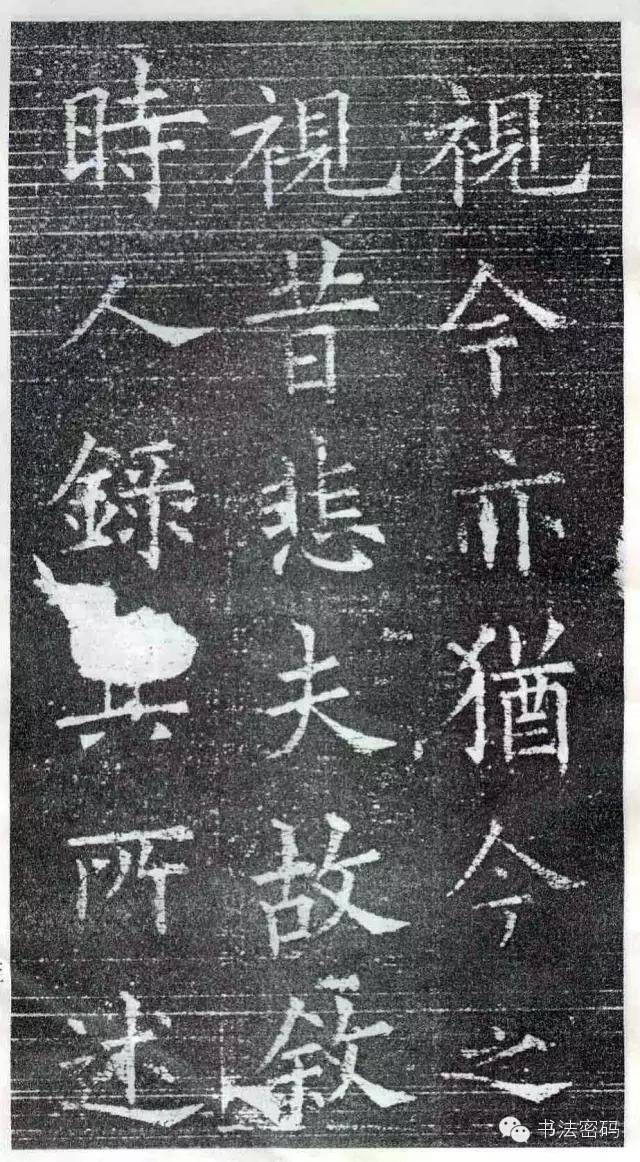 視今亦猶今之
視昔悲夫故敘
時人錄其所述
书法密码